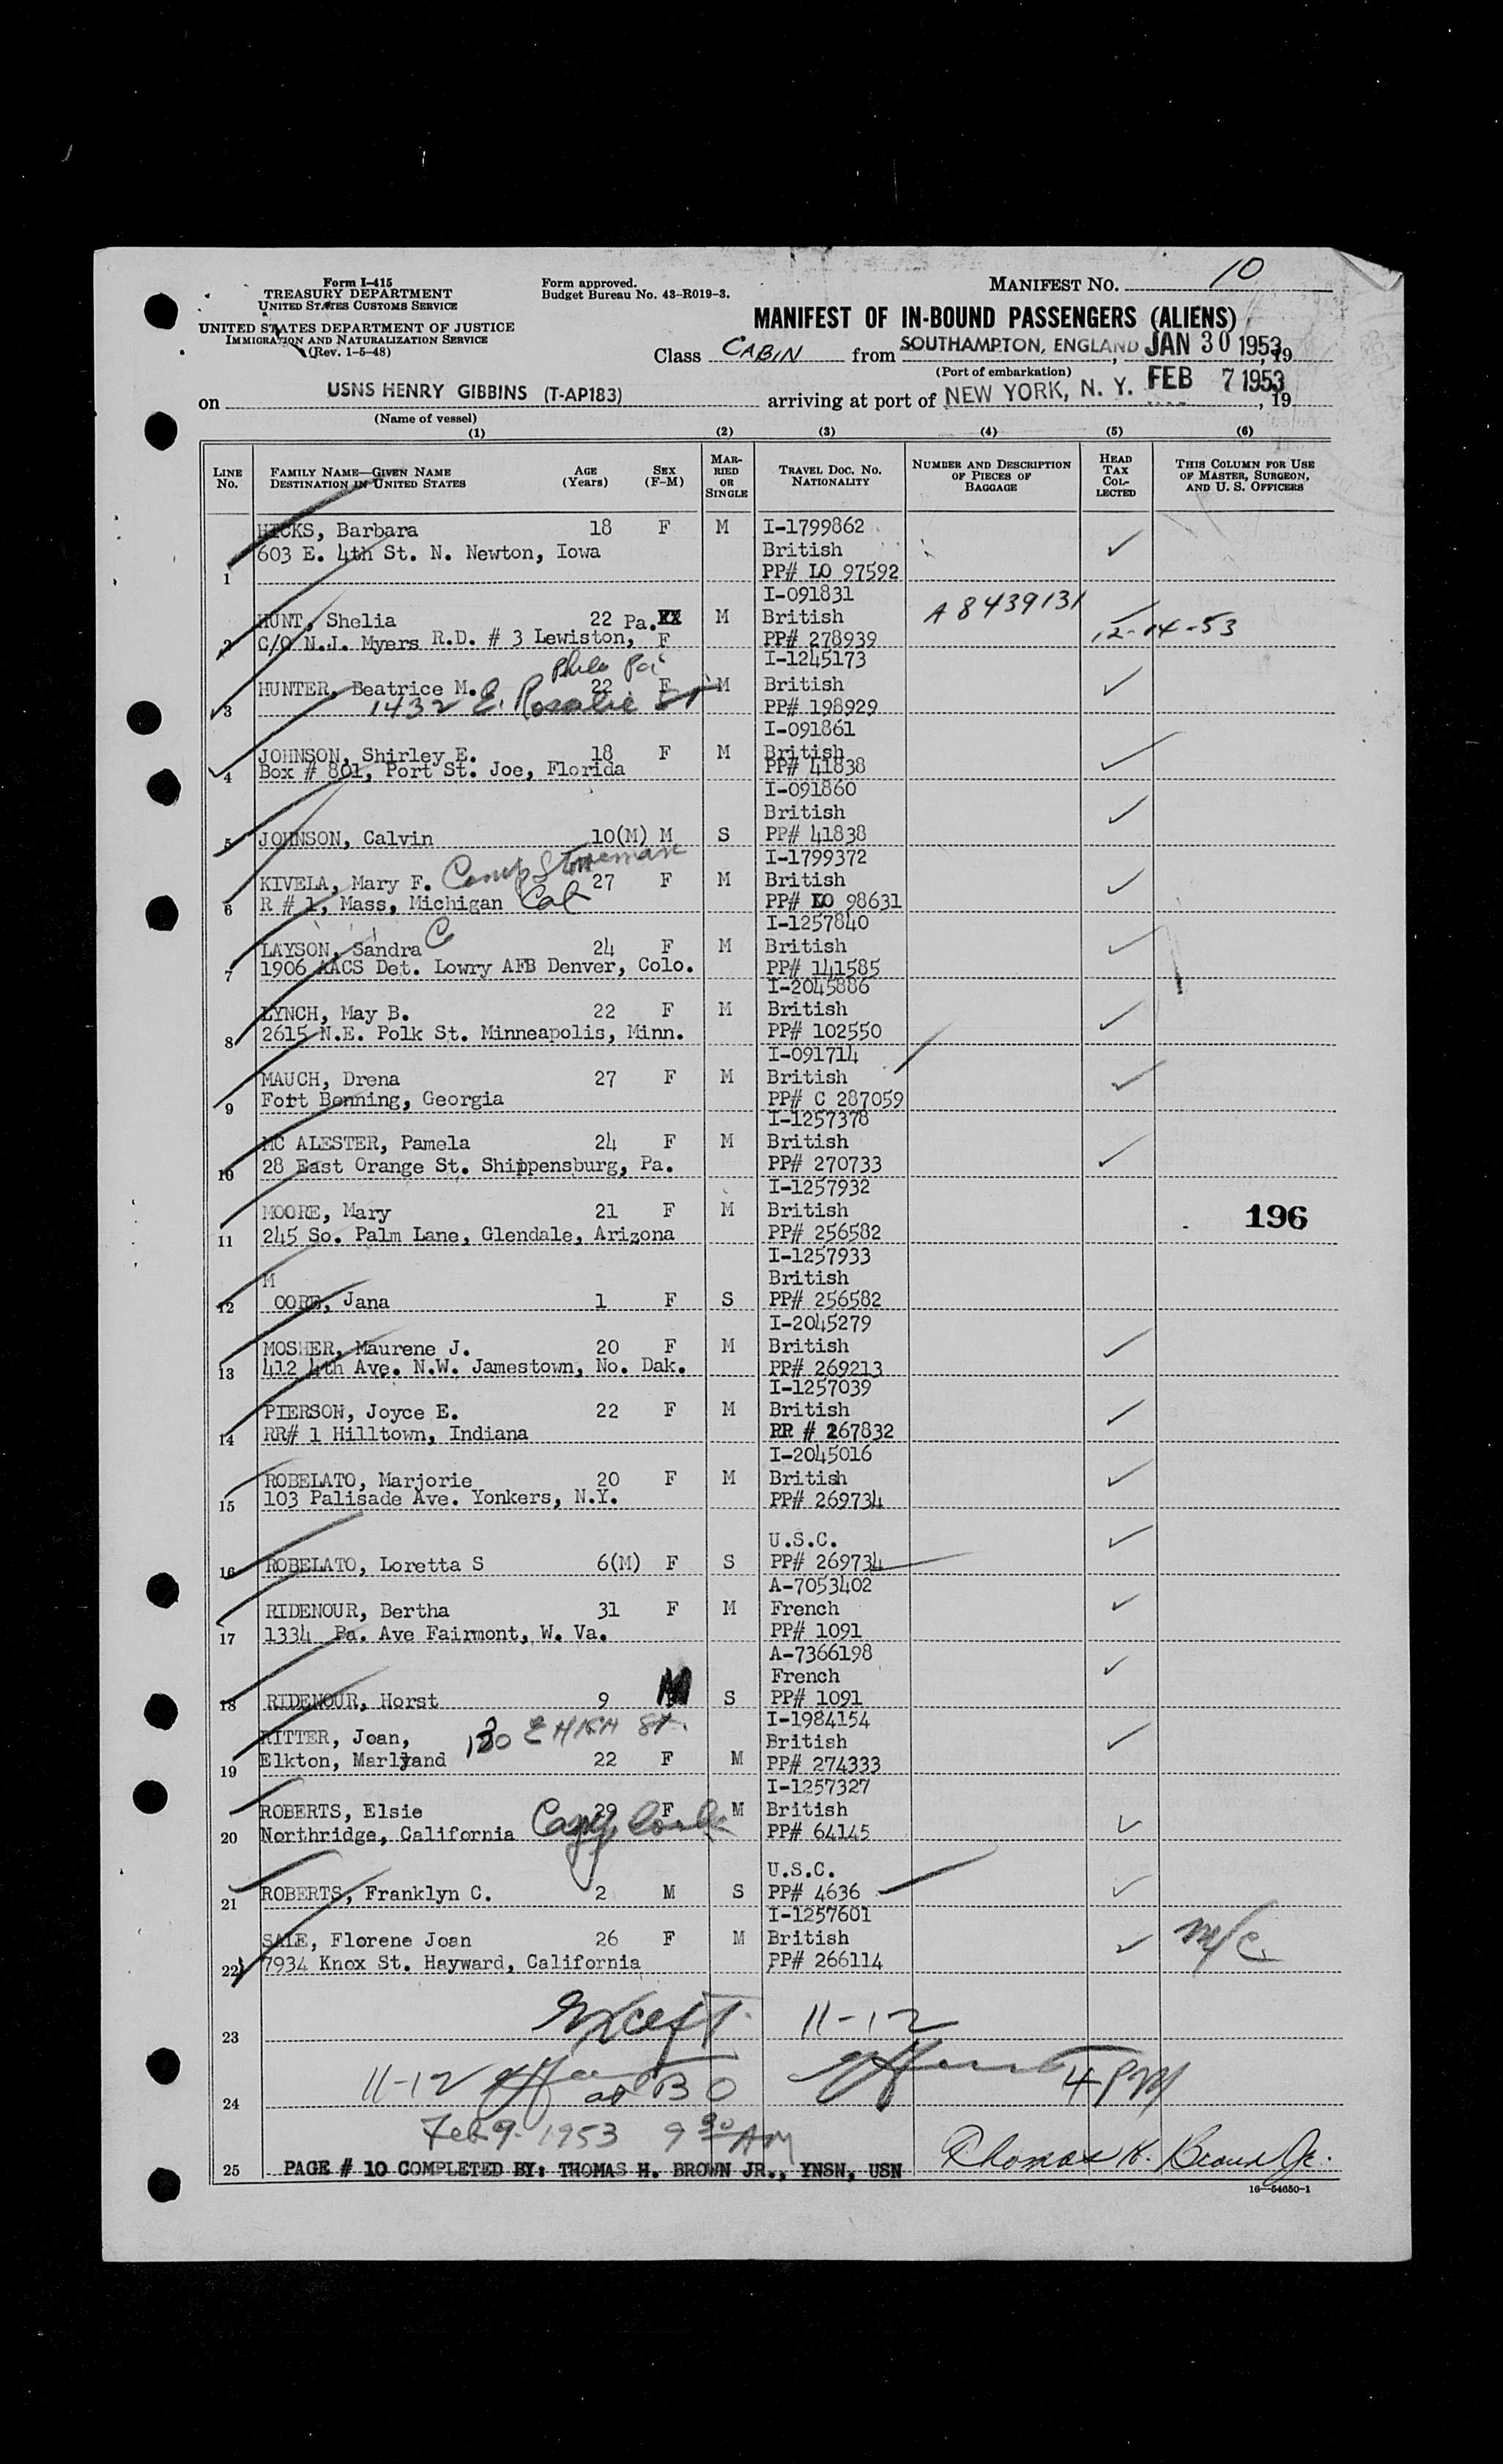 Form I-415
TREASURY DEPARTMENT
UNITED STATES CUSTOMS SERVICE
UNITED STATES DEPARTMENT OF JUSTICE
IMMIGRATION AND NATURALIZATION SERVICE
(Rev. 1-5-48)
Form approved.
Budget Bureau No. 43-R019-3.
MANIFEST NO. 10
MANIFEST OF IN-BOUND PASSENGERS (ALIENS)
Class CABIN from SOUTHAMPTON, ENGLAND, JAN 30 1953, 19
(Port of embarkation)
on USNS HENRY GIBBINS (T-AP183) arriving at port of NEW YORK, N. Y. FEB 7 1953, 19
(Name of vessel)
(1) (2) (3) (4) (5) (6)
LINE No.
FAMILY NAME—GIVEN NAME
DESTINATION IN UNITED STATES
AGE (Years)
SEX (F-M)
MARRIED OR SINGLE
TRAVEL DOC. NO. NATIONALITY
NUMBER AND DESCRIPTION OF PIECES OF BAGGAGE
HEAD TAX COLLECTED
THIS COLUMN FOR USE OF MASTER, SURGEON, AND U. S. OFFICERS
HICKS, Barbara 18 F M I-1799862
603 E. 4th St. N. Newton, Iowa British
1 PP# LO 97592
I-091831
HUNT, Shelia 22 Pa. XX M British A8439131
2 C/O N.J. Myers R.D. # 3 Lewiston, F PP# 278939 12-14-53
I-1245173
Phila Pa
HUNTER, Beatrice M. 22 F M British
3 1432 E. Rosalie St PP# 198929
I-091861
JOHNSON, Shirley E. 18 F M British
4 Box # 801, Port St. Joe, Florida PP# 41838
I-091860
British
5 JOHNSON, Calvin 10(M) M S PP# 41838
I-1799372
KIVELA, Mary F. Camp Stoneman 27 F M British
6 R # 1, Mass, Michigan Cal PP# LO 98631
I-1257840
LAYSON, Sandra C 24 F M British
7 1906 AACS Det. Lowry AFB Denver, Colo. PP# 141585
I-2045886
LYNCH, May B. 22 F M British
8 2615 N.E. Polk St. Minneapolis, Minn. PP# 102550
I-091714
MAUCH, Drena 27 F M British
9 Fort Benning, Georgia PP# C 287059
I-1257378
MC ALESTER, Pamela 24 F M British
10 28 East Orange St. Shippensburg, Pa. PP# 270733
I-1257932
MOORE, Mary 21 F M British 196
11 245 So. Palm Lane, Glendale, Arizona PP# 256582
I-1257933
M British
12 OORE, Jana 1 F S PP# 256582
I-2045279
MOSHER, Maurene J. 20 F M British
13 412 4th Ave. N.W. Jamestown, No. Dak. PP# 269213
I-1257039
PIERSON, Joyce E. 22 F M British
14 RR# 1 Hilltown, Indiana PP # 267832
I-2045016
ROBELATO, Marjorie 20 F M British
15 103 Palisade Ave. Yonkers, N.Y. PP# 269734
U.S.C.
16 ROBELATO, Loretta S 6(M) F S PP# 269734
A-7053402
RIDENOUR, Bertha 31 F M French
17 1334 Pa. Ave Fairmont, W. Va. PP# 1091
A-7366198
French
18 RIDENOUR, Horst 9 M S PP# 1091
I-1984154
RITTER, Joan, 130 E HIGH St. British
19 Elkton, Maryland 22 F M PP# 274333
I-1257327
ROBERTS, Elsie 29 F M British
20 Northridge, California PP# 64145
U.S.C.
21 ROBERTS, Franklyn C. 2 M S PP# 4636
I-1257601
SALE, Florene Joan 26 F M British M/C
22 7934 Knox St. Hayward, California PP# 266114
23 Except 11-12
24 11-12 at BO 4 PM
Feb 9 1953 9 30 AM
25 PAGE # 10 COMPLETED BY: THOMAS H. BROWN JR., YNSN, USN Thomas H. Brown Jr.
16—54650-1